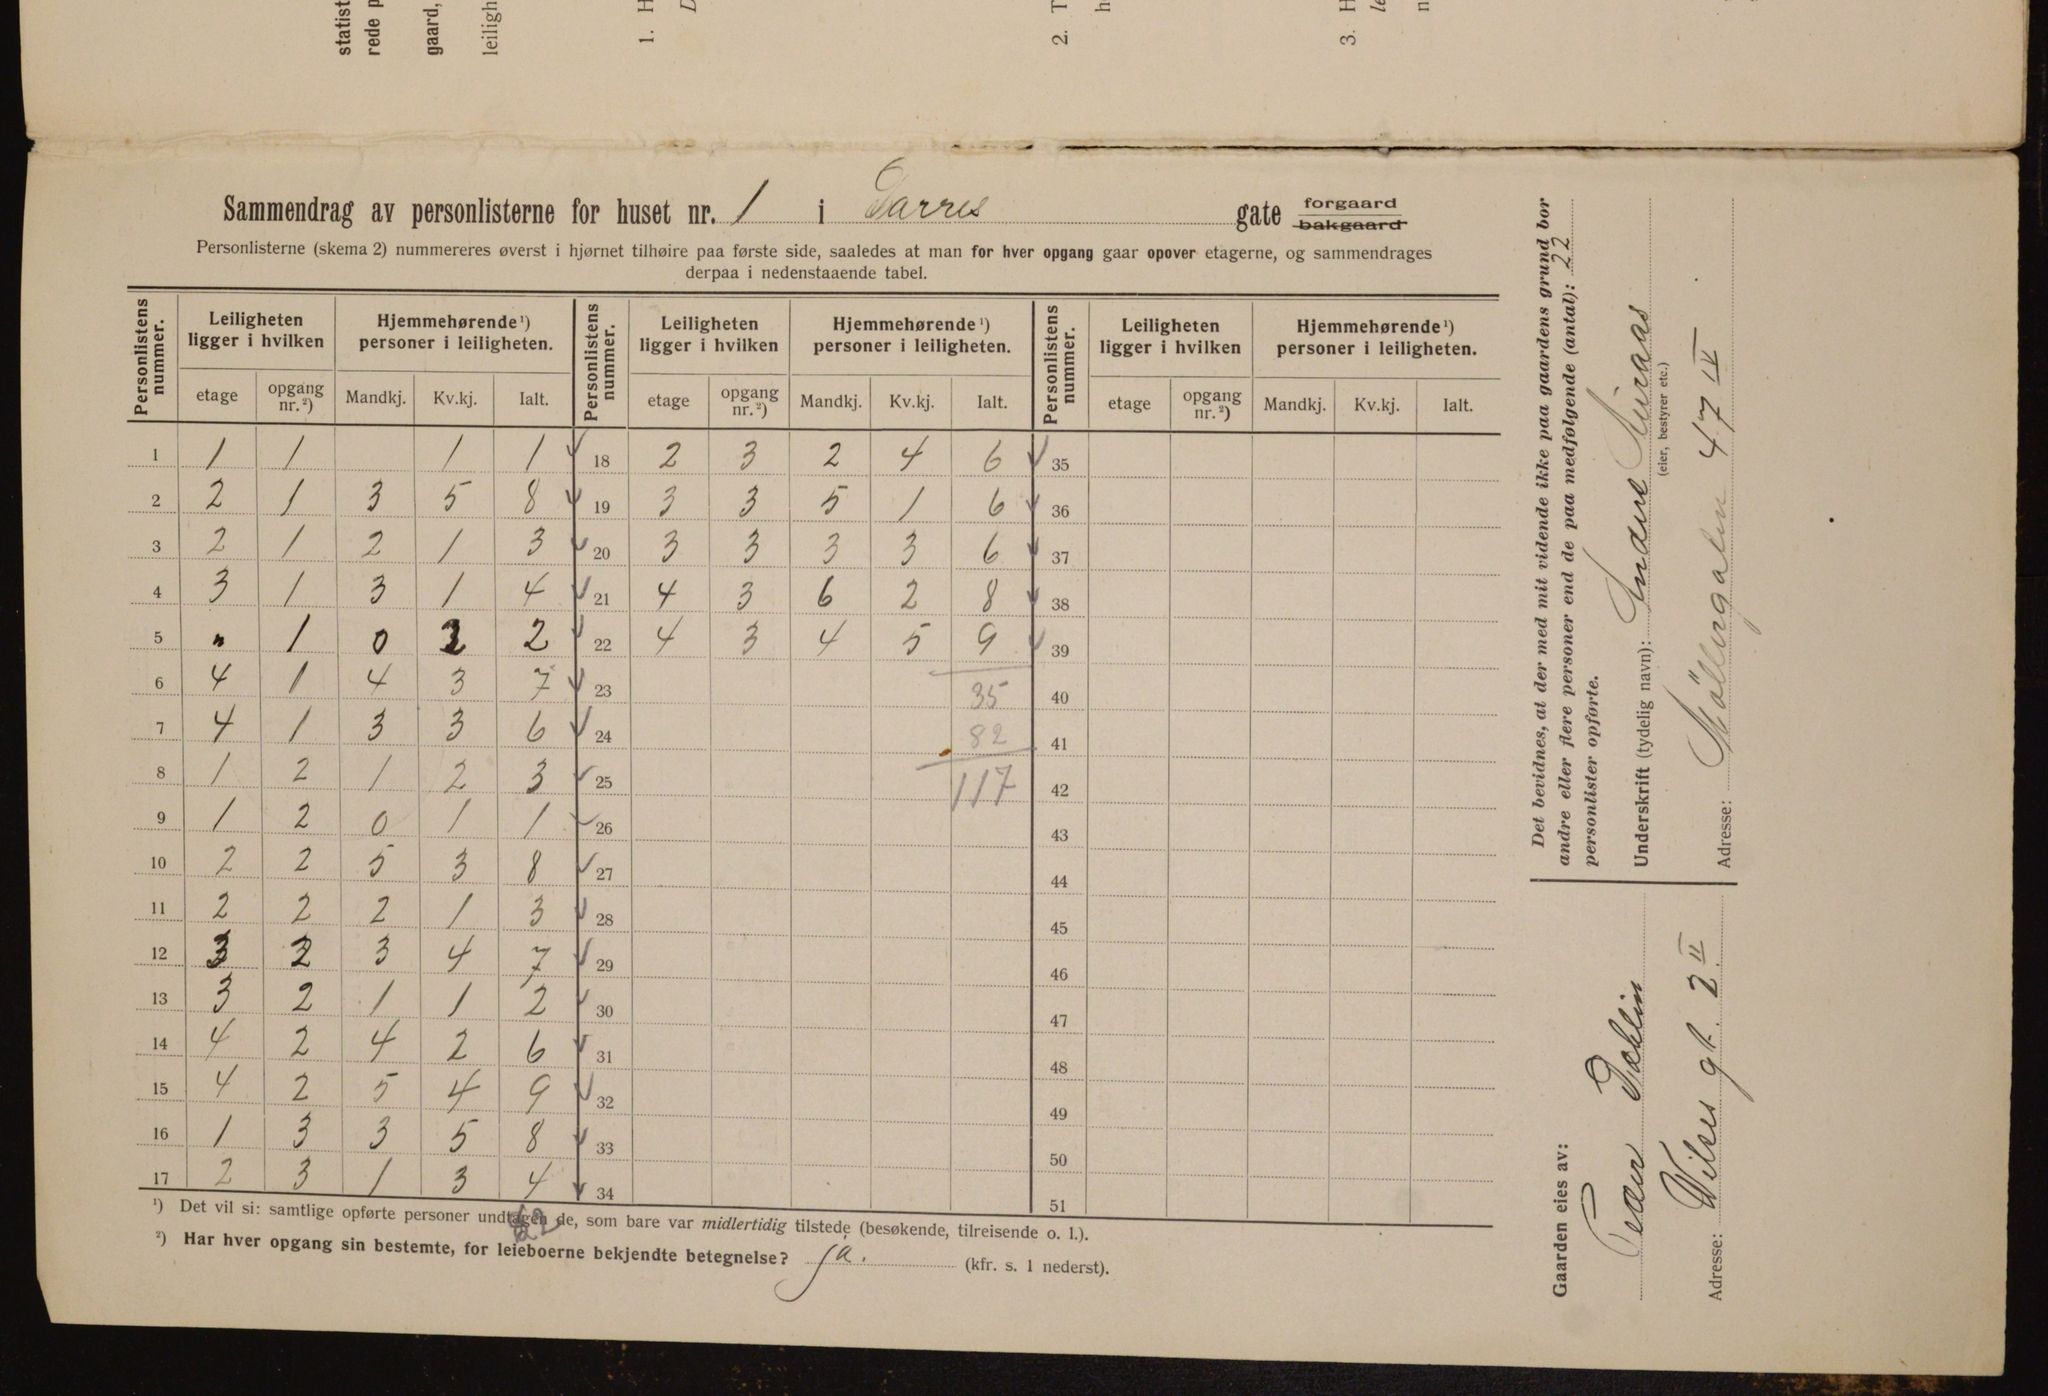 statist
rede p
gaard,
leiligh
1. H
D
2. T
h
3. H
le
n
Sammendrag av personlisterne for huset nr. 1 i Darres gate forgaard bakgaard
Personlisterne (skema 2) nummereres øverst i hjørnet tilhøire paa første side, saaledes at man for hver opgang gaar opover etagerne, og sammendrages
derpaa i nedenstaaende tabel.
Personlistens nummer. Leiligheten ligger i hvilken Hjemmehørende ¹) personer i leiligheten. Personlistens nummer. Leiligheten ligger i hvilken Hjemmehørende ¹) personer i leiligheten. Personlistens nummer. Leiligheten ligger i hvilken Hjemmehørende ¹) personer i leiligheten.
etage opgang nr. ²) Mandkj. Kv.kj. Ialt. etage opgang nr. ²) Mandkj. Kv.kj. Ialt. etage opgang nr. ²) Mandkj. Kv.kj. Ialt.
1 1 1 1 1 18 2 3 2 4 6 35
2 2 1 3 5 8 19 3 3 5 1 6 36
3 2 1 2 1 3 20 3 3 3 3 6 37
4 3 1 3 1 4 21 4 3 6 2 8 38
5 " 1 0 2 2 22 4 3 4 5 9 39
6 4 1 4 3 7 23 35 40
7 4 1 3 3 6 24 82 41
8 1 2 1 2 3 25 117 42
9 1 2 0 1 1 26 43
10 2 2 5 3 8 27 44
11 2 2 2 1 3 28 45
12 3 2 3 4 7 29 46
13 3 2 1 1 2 30 47
14 4 2 4 2 6 31 48
15 4 2 5 4 9 32 49
16 1 3 3 5 8 33 50
17 2 3 1 3 4 34 51
82
¹) Det vil si: samtlige opførte personer undtagen de, som bare var midlertidig tilstede (besøkende, tilreisende o. l.).
²) Har hver opgang sin bestemte, for leieboerne bekjendte betegnelse? ja. (kfr. s. 1 nederst).
Det bevidnes, at der med mit vidende ikke paa gaardens grund bor
andre eller flere personer end de paa medfølgende (antal): 22
personlister opførte.
Underskrift (tydelig navn):
(eier, bestyrer etc.)
Adresse: Möllergaten 47 IV
Gaarden eies av:
Peder Dahlin
Adresse: Wilses gt. 2 II